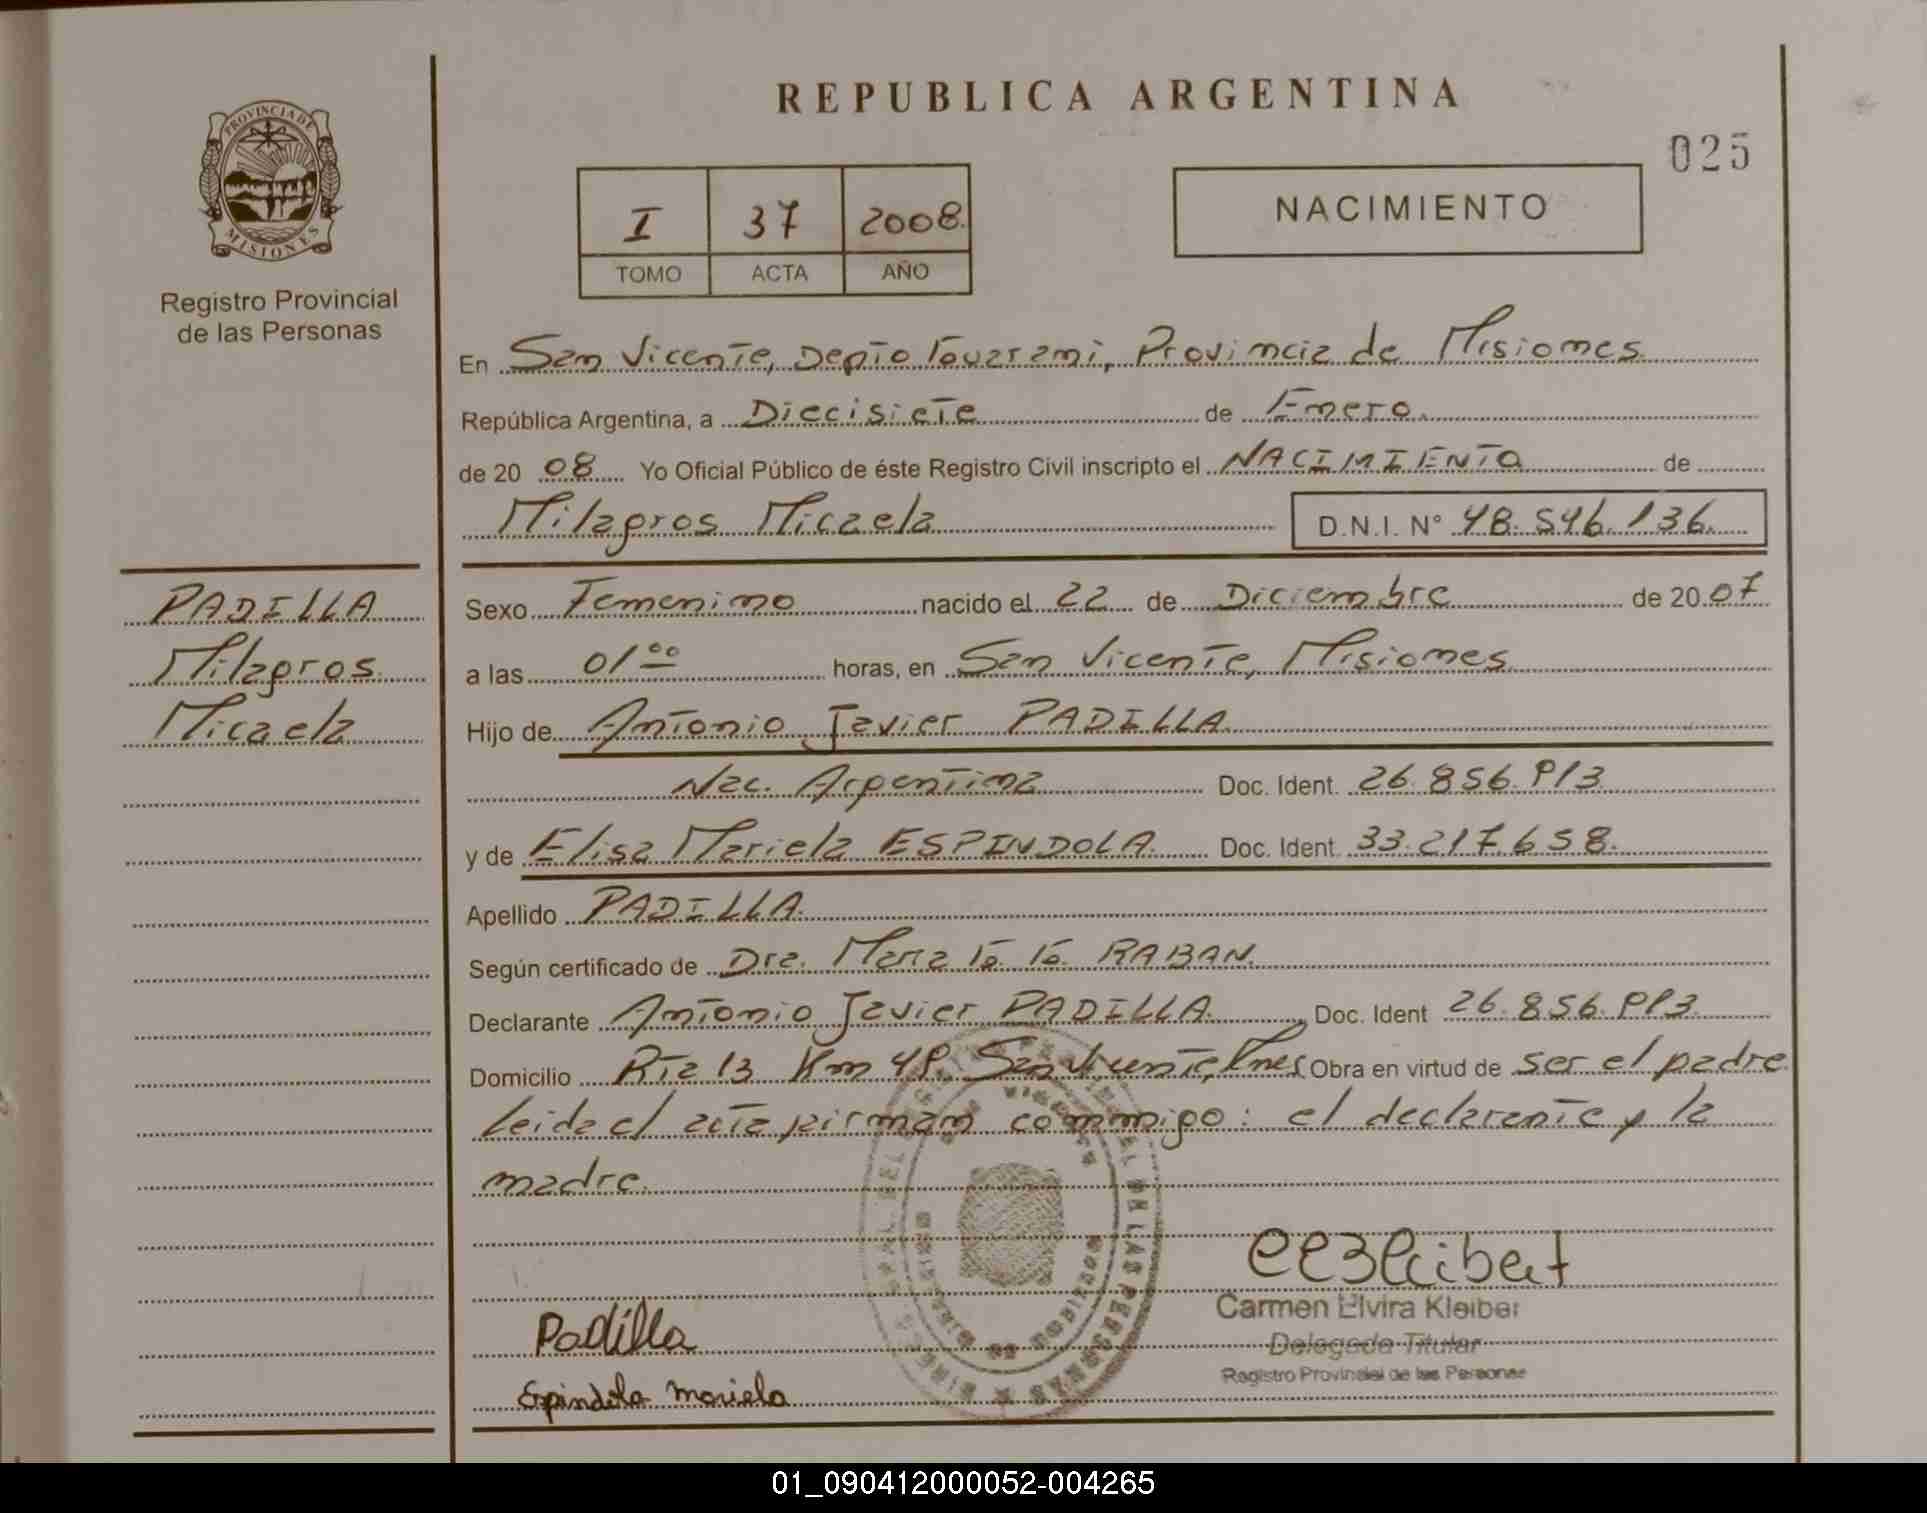 PROVINCIA DE
MISIONES
Registro Provincial
de las Personas
REPUBLICA ARGENTINA
025
I 37 2008.
TOMO ACTA AÑO
NACIMIENTO
En San Vicente, Depto Guarani, Provincia de Misiones
República Argentina, a Diecisiete de Enero.
de 20 08 Yo Oficial Público de éste Registro Civil inscripto el NACIMIENTO de
Milagros Micaela D.N.I. N° 48.546.136.
PADILLA
Milagros
Micaela
Sexo Femenino nacido el 22 de Diciembre de 20 07
a las 01 00 horas, en San Vicente, Misiones
Hijo de Antonio Javier PADILLA
Nac. Argentina Doc. Ident. 26.856.913
y de Elisa Mariela ESPINDOLA. Doc. Ident. 33.217.658.
Apellido PADILLA.
Según certificado de Dra. Maria G. G. RABAN.
Declarante Antonio Javier PADILLA. Doc. Ident 26.856.913.
Domicilio Rta 13 Km 49. San Vicente, Mnes Obra en virtud de ser el padre
Leida el acta firman conmigo: el declarante y la
madre.
Padilla
Espindola Mariela
Carmen Elvira Kleiber
Delegada Titular
Registro Provincial de las Personas
01_090412000052-004265